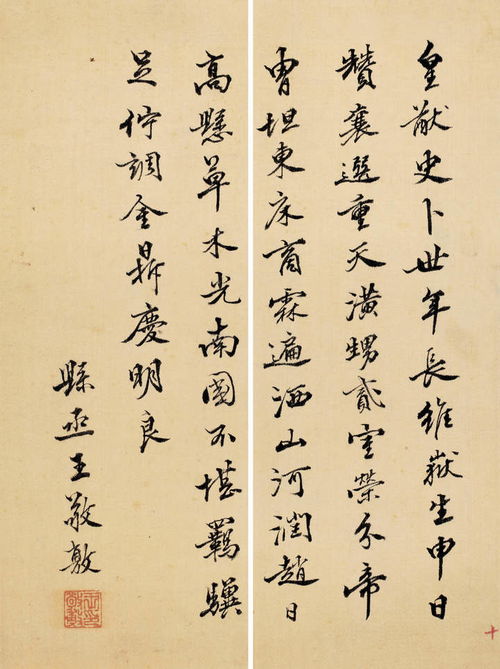 皇猷史卜世年長維嶽生申日
贊襄選重天潢甥貳室榮分帝
胄坦東床商霖遍洒山河潤趙日
高懸草木光南國不堪羈驥
足佇調金鼎慶明良
縣丞王敬敷
十